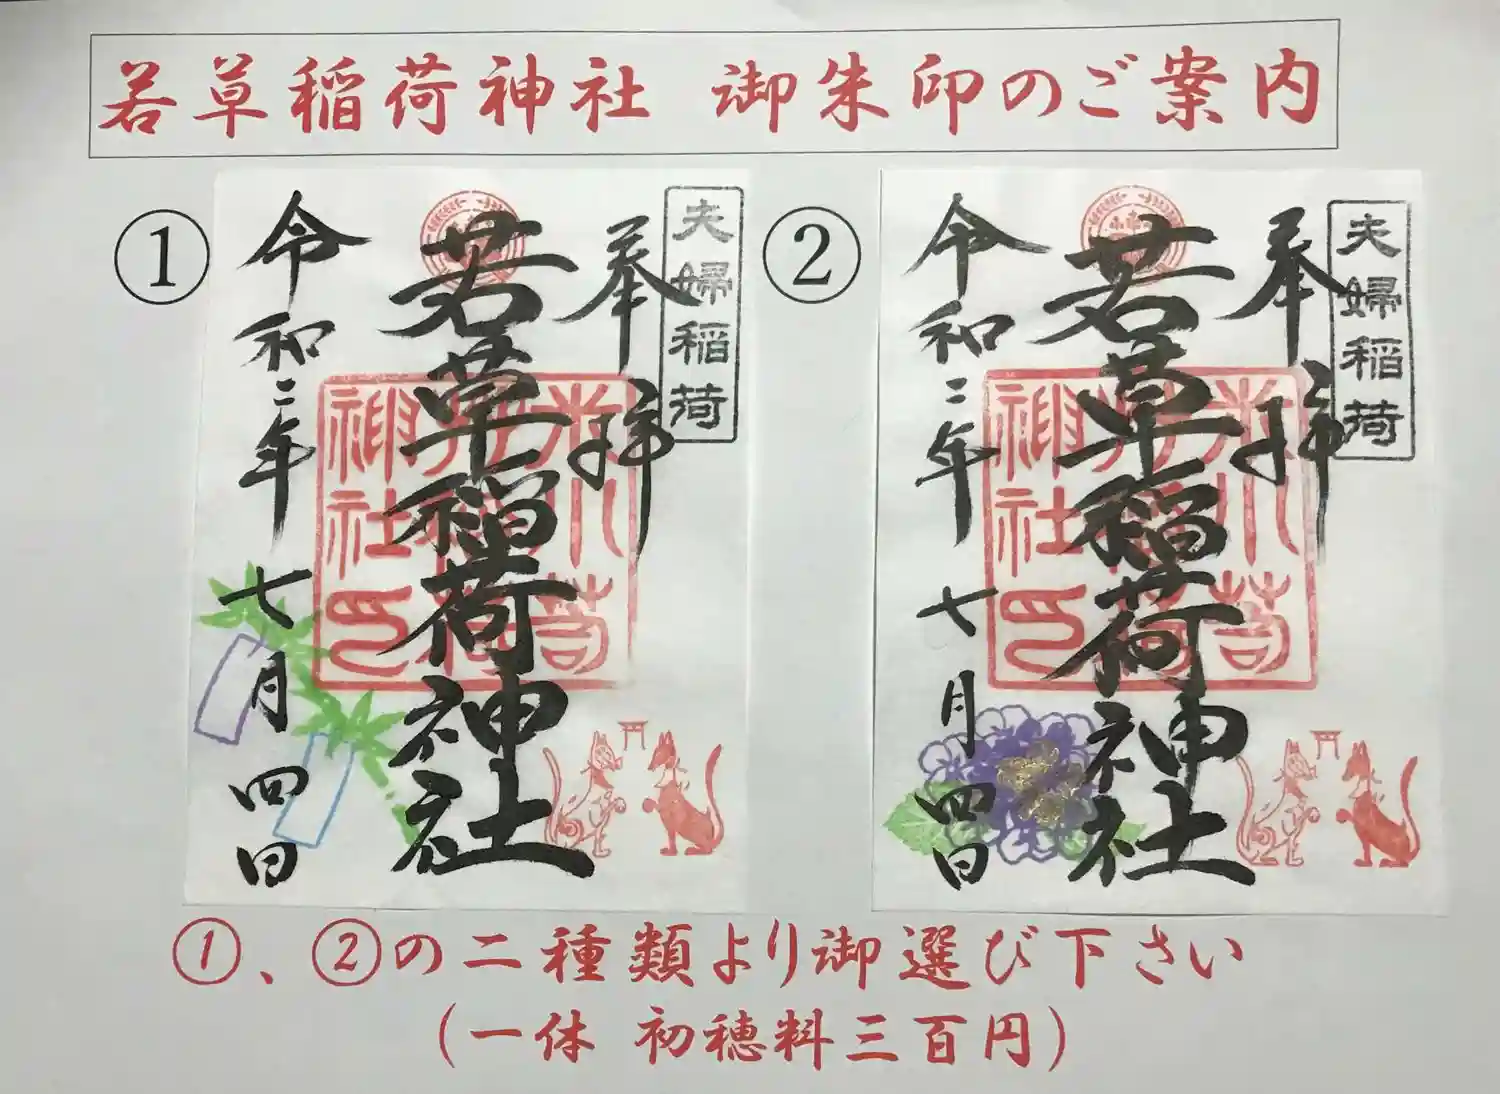 若草稲荷神社 御朱印のご案内
①
夫婦稲荷
奉拝
若草稲荷神社
令和二年 七月四日
②
夫婦稲荷
奉拝
若草稲荷神社
令和二年 七月四日
①、②の二種類より御選び下さい
(一体 初穂料三百円)